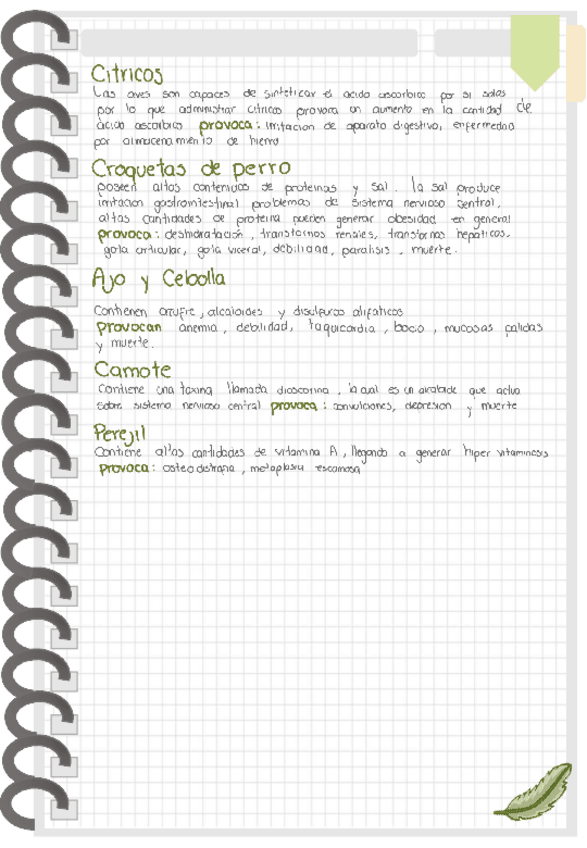 Citricos
Las aves son capaces de sintetizar el acido ascorbico por si solas
por lo que administrar citricos provoca un aumento en la cantidad de
ácido ascorbico provoca: irritacion de aparato digestivo, enfermedad
por almacenamiento de hierro
Croquetas de perro
poseen altos contenidos de proteinas y sal. la sal produce
irritación gastrointestinal problemas de sistema nervioso central,
altas cantidades de proteina pueden generar obesidad en general
provoca: deshidratación, transtornos renales, transtornos hepáticos,
gota articular, gota viceral, debilidad, paralisis, muerte.
Ajo y Cebolla
Contienen azufre, alcaloides y disulfuros alifaticos
provocan anemia, debilidad, taquicardia, bocio, mucosas palidas
y muerte.
Camote
Contiene una toxina llamada dioscorina, la cual es un alcaloide que actua
sobre sistema nervioso central provoca: convulciones, depresion y muerte
Perejil
Contiene altas cantidades de vitamina A, llegando a generar hiper vitaminosis
provoca: osteodistrofia, metaplasia escamosa